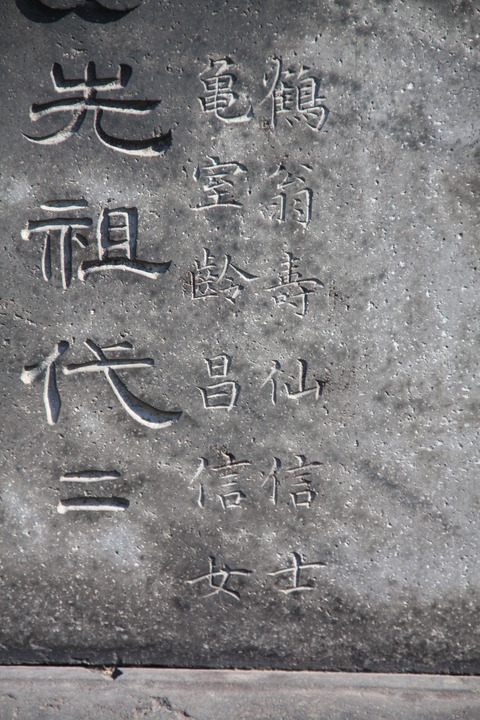 鶴翁壽仙信士
亀室齢昌信女
先祖代二